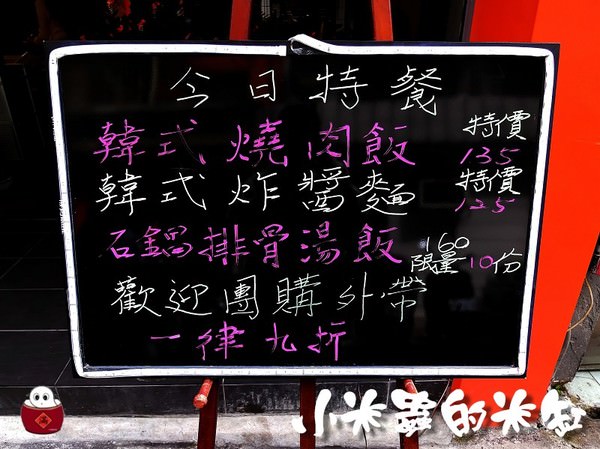 今日特餐
韓式燒肉飯 特價135
韓式炸醬麵 特價125
石鍋排骨湯飯 160 限量10份
歡迎團購外帶
一律九折
小米蟲的米缸